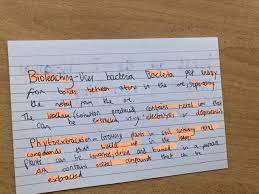 Bioleaching - Uses bacteria. Bacteria get energy
from bonds between atoms in the ore, separating
the metal from the ore.
The leachate (solution produced) contains metal ions that
can be extracted using electrolysis or displacement
Phytoextraction - Growing plants in soil containing metal
compounds that would up in the leaves
plants can be harvested, dried and burned in a furnace
Ash contains metal compounds that can be
extracted